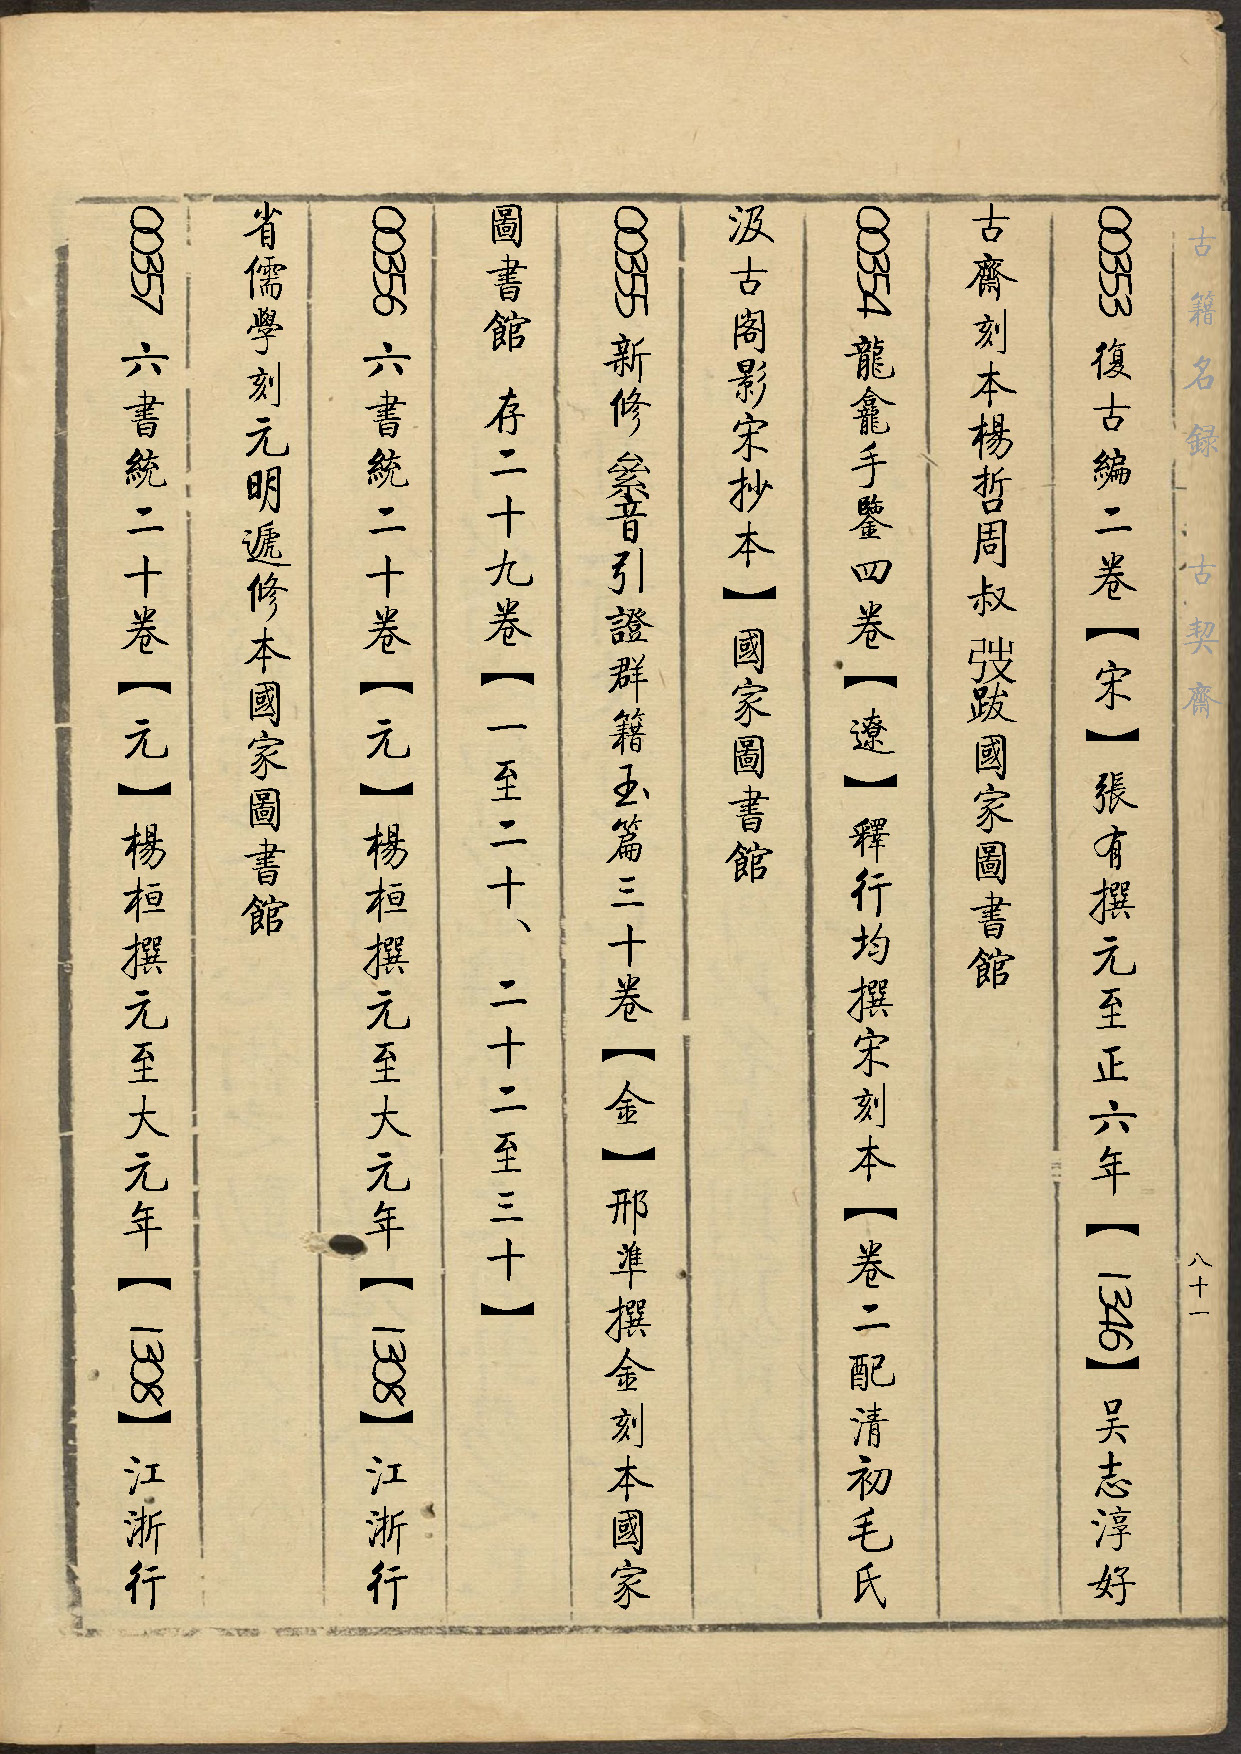 古籍名録 古契齋
八十一
00353 復古編二卷【宋】張有撰元至正六年【1346】吴志淳好
古齋刻本楊哲周叔弢跋國家圖書館
00354 龍龕手鑒四卷【遼】釋行均撰宋刻本【卷二配清初毛氏
汲古阁影宋抄本】國家圖書館
00355 新修絫音引證群籍玉篇三十卷【金】邢準撰金刻本國家
圖書館 存二十九卷【一至二十、二十二至三十】
00356 六書統二十卷【元】楊桓撰元至大元年【1308】江浙行
省儒學刻元明遞修本國家圖書館
00357 六書統二十卷【元】楊桓撰元至大元年【1308】江浙行